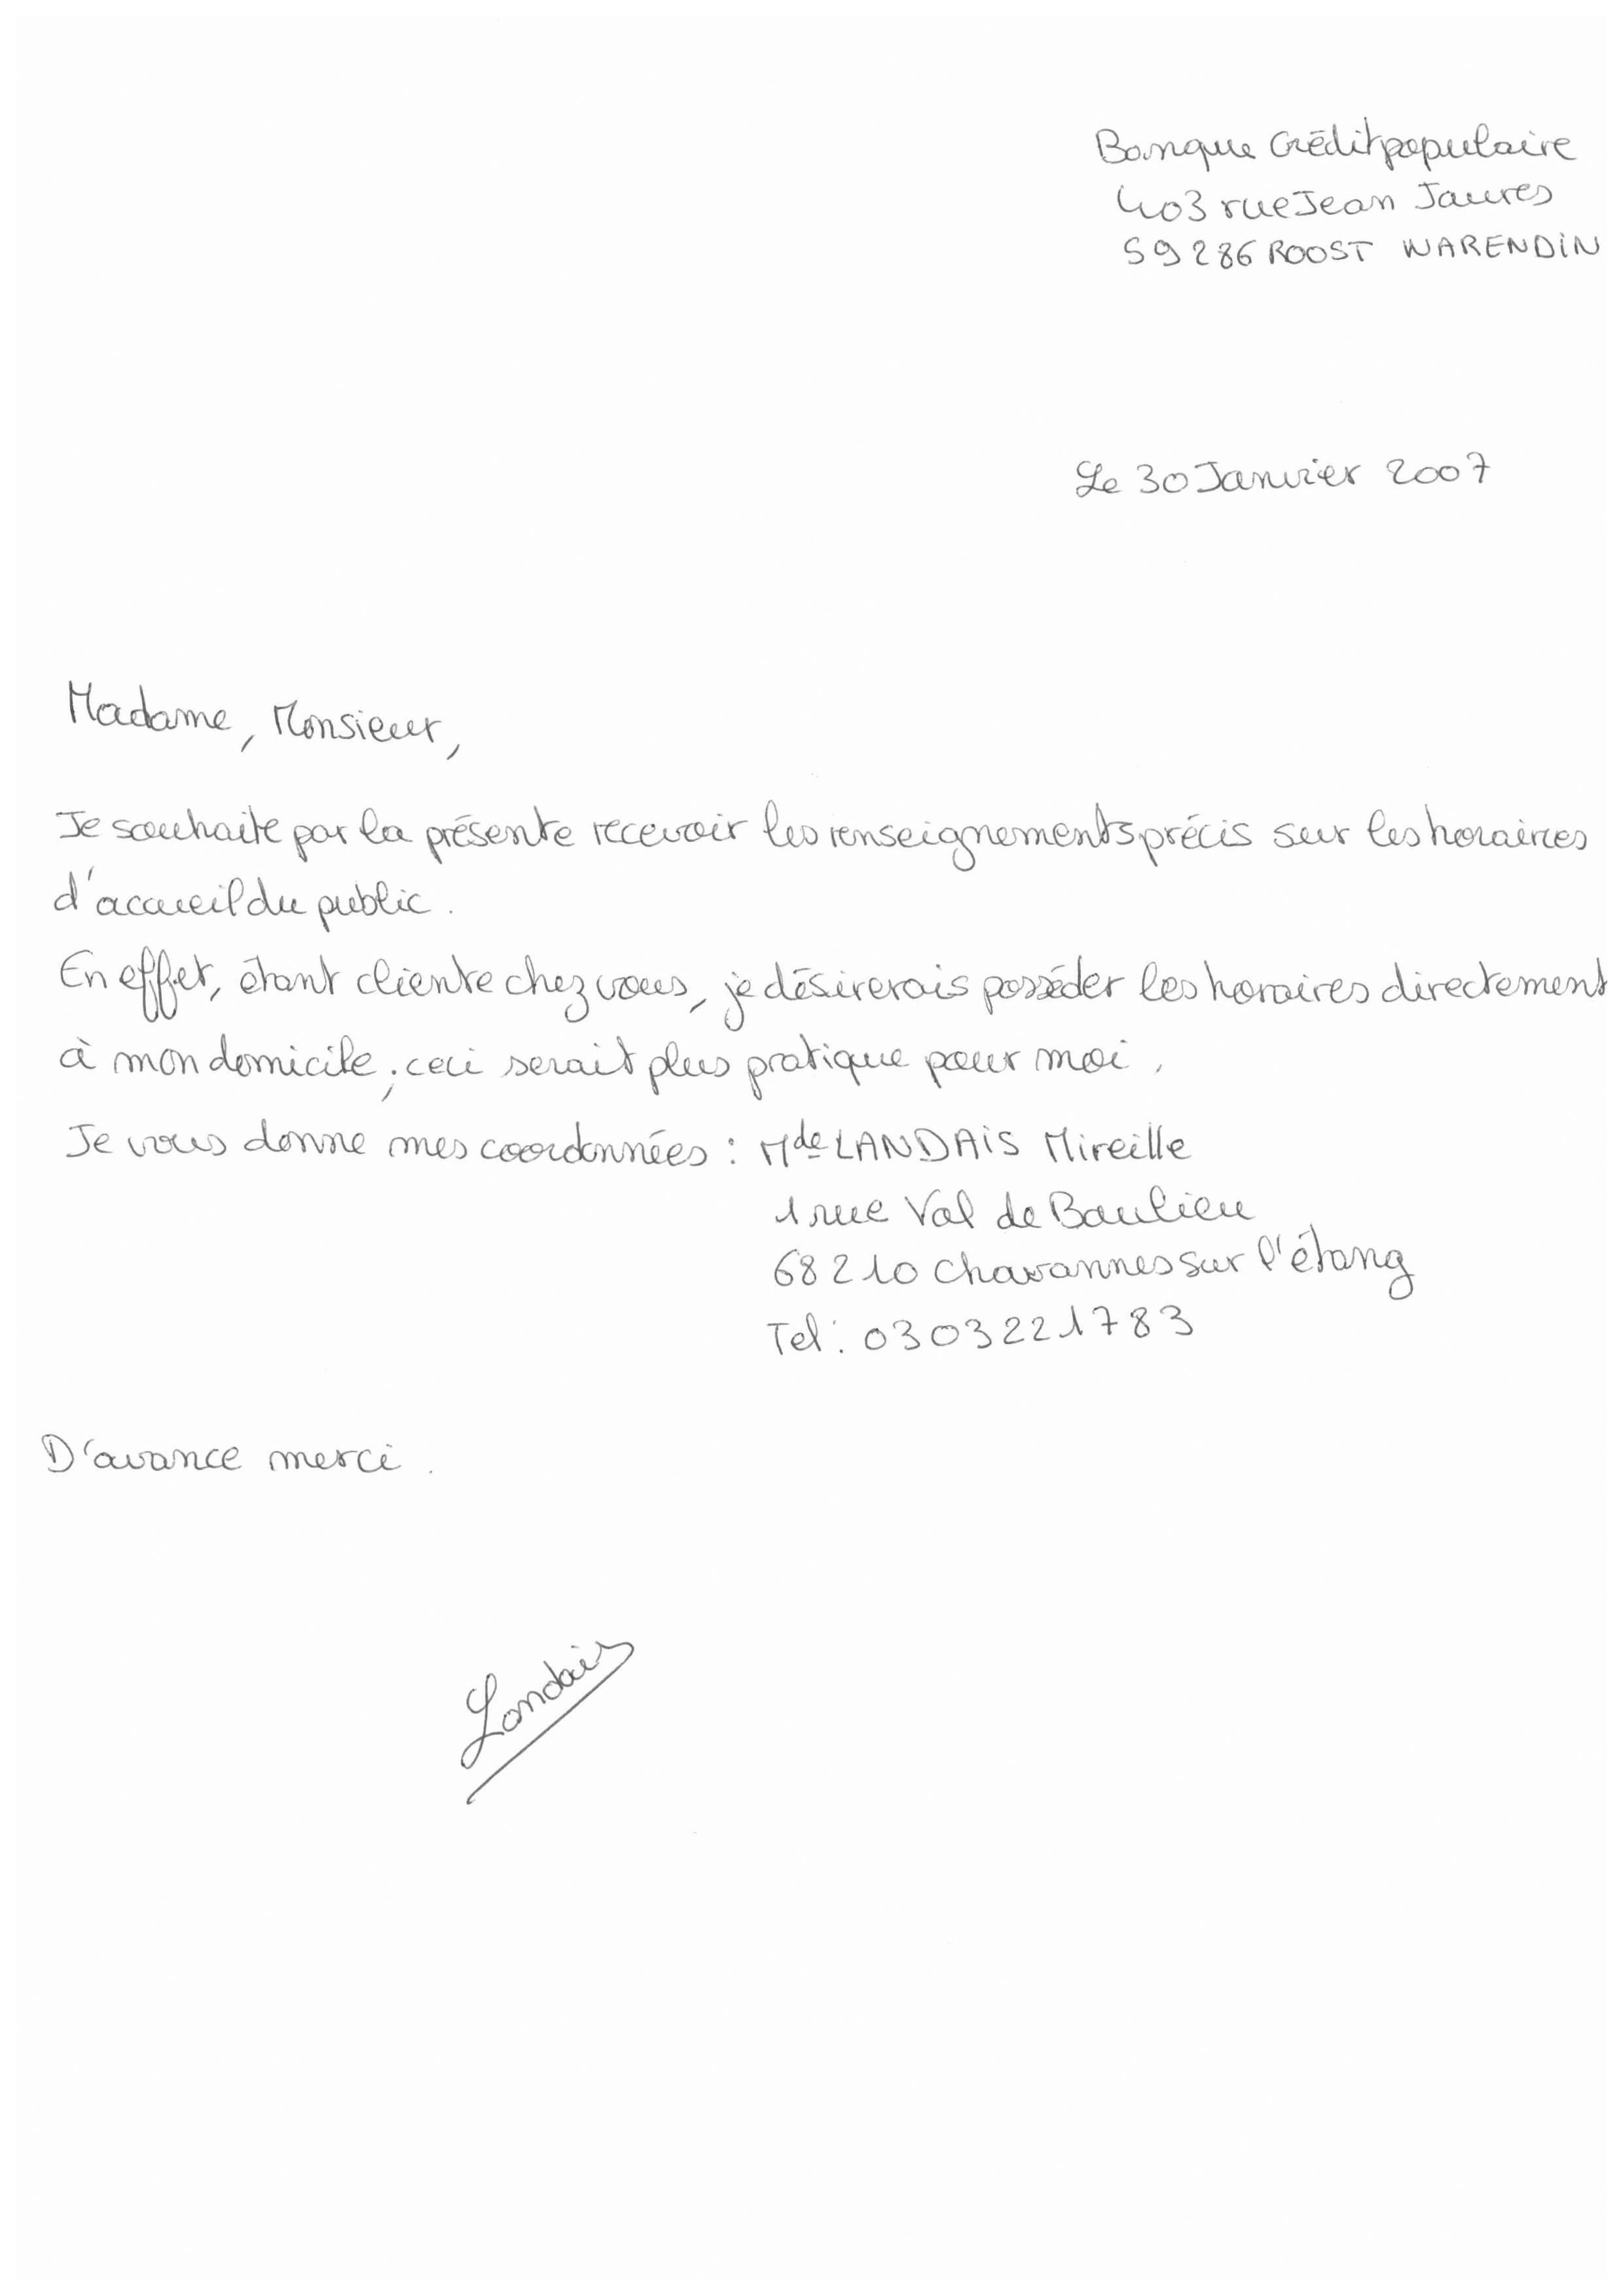 Banque Crédit populaire
403 rue Jean Jaures
59286 ROOST WARENDIN
Le 30 Janvier 2007
Madame, Monsieur,
Je souhaite par la présente recevoir les renseignements précis sur les horaires
d'accueil du public.
En effet, étant cliente chez vous, je désirerais posséder les horaires directement
à mon domicile ; ceci serait plus pratique pour moi.
Je vous donne mes coordonnées : Mde LANDAIS Mireille
1 rue Val de Baulieu
68210 Chavannes sur l'étang
Tel : 0303221783
D'avance merci.
Landais